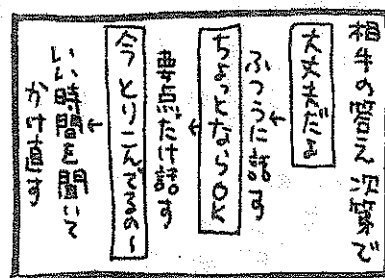 相手の答え次第で
大丈夫だよ
↓
ふつうに話す
ちょっとならOK
↓
要点だけ話す
今とりこんでるの〜
↓
いい時間を聞いて
かけ直す